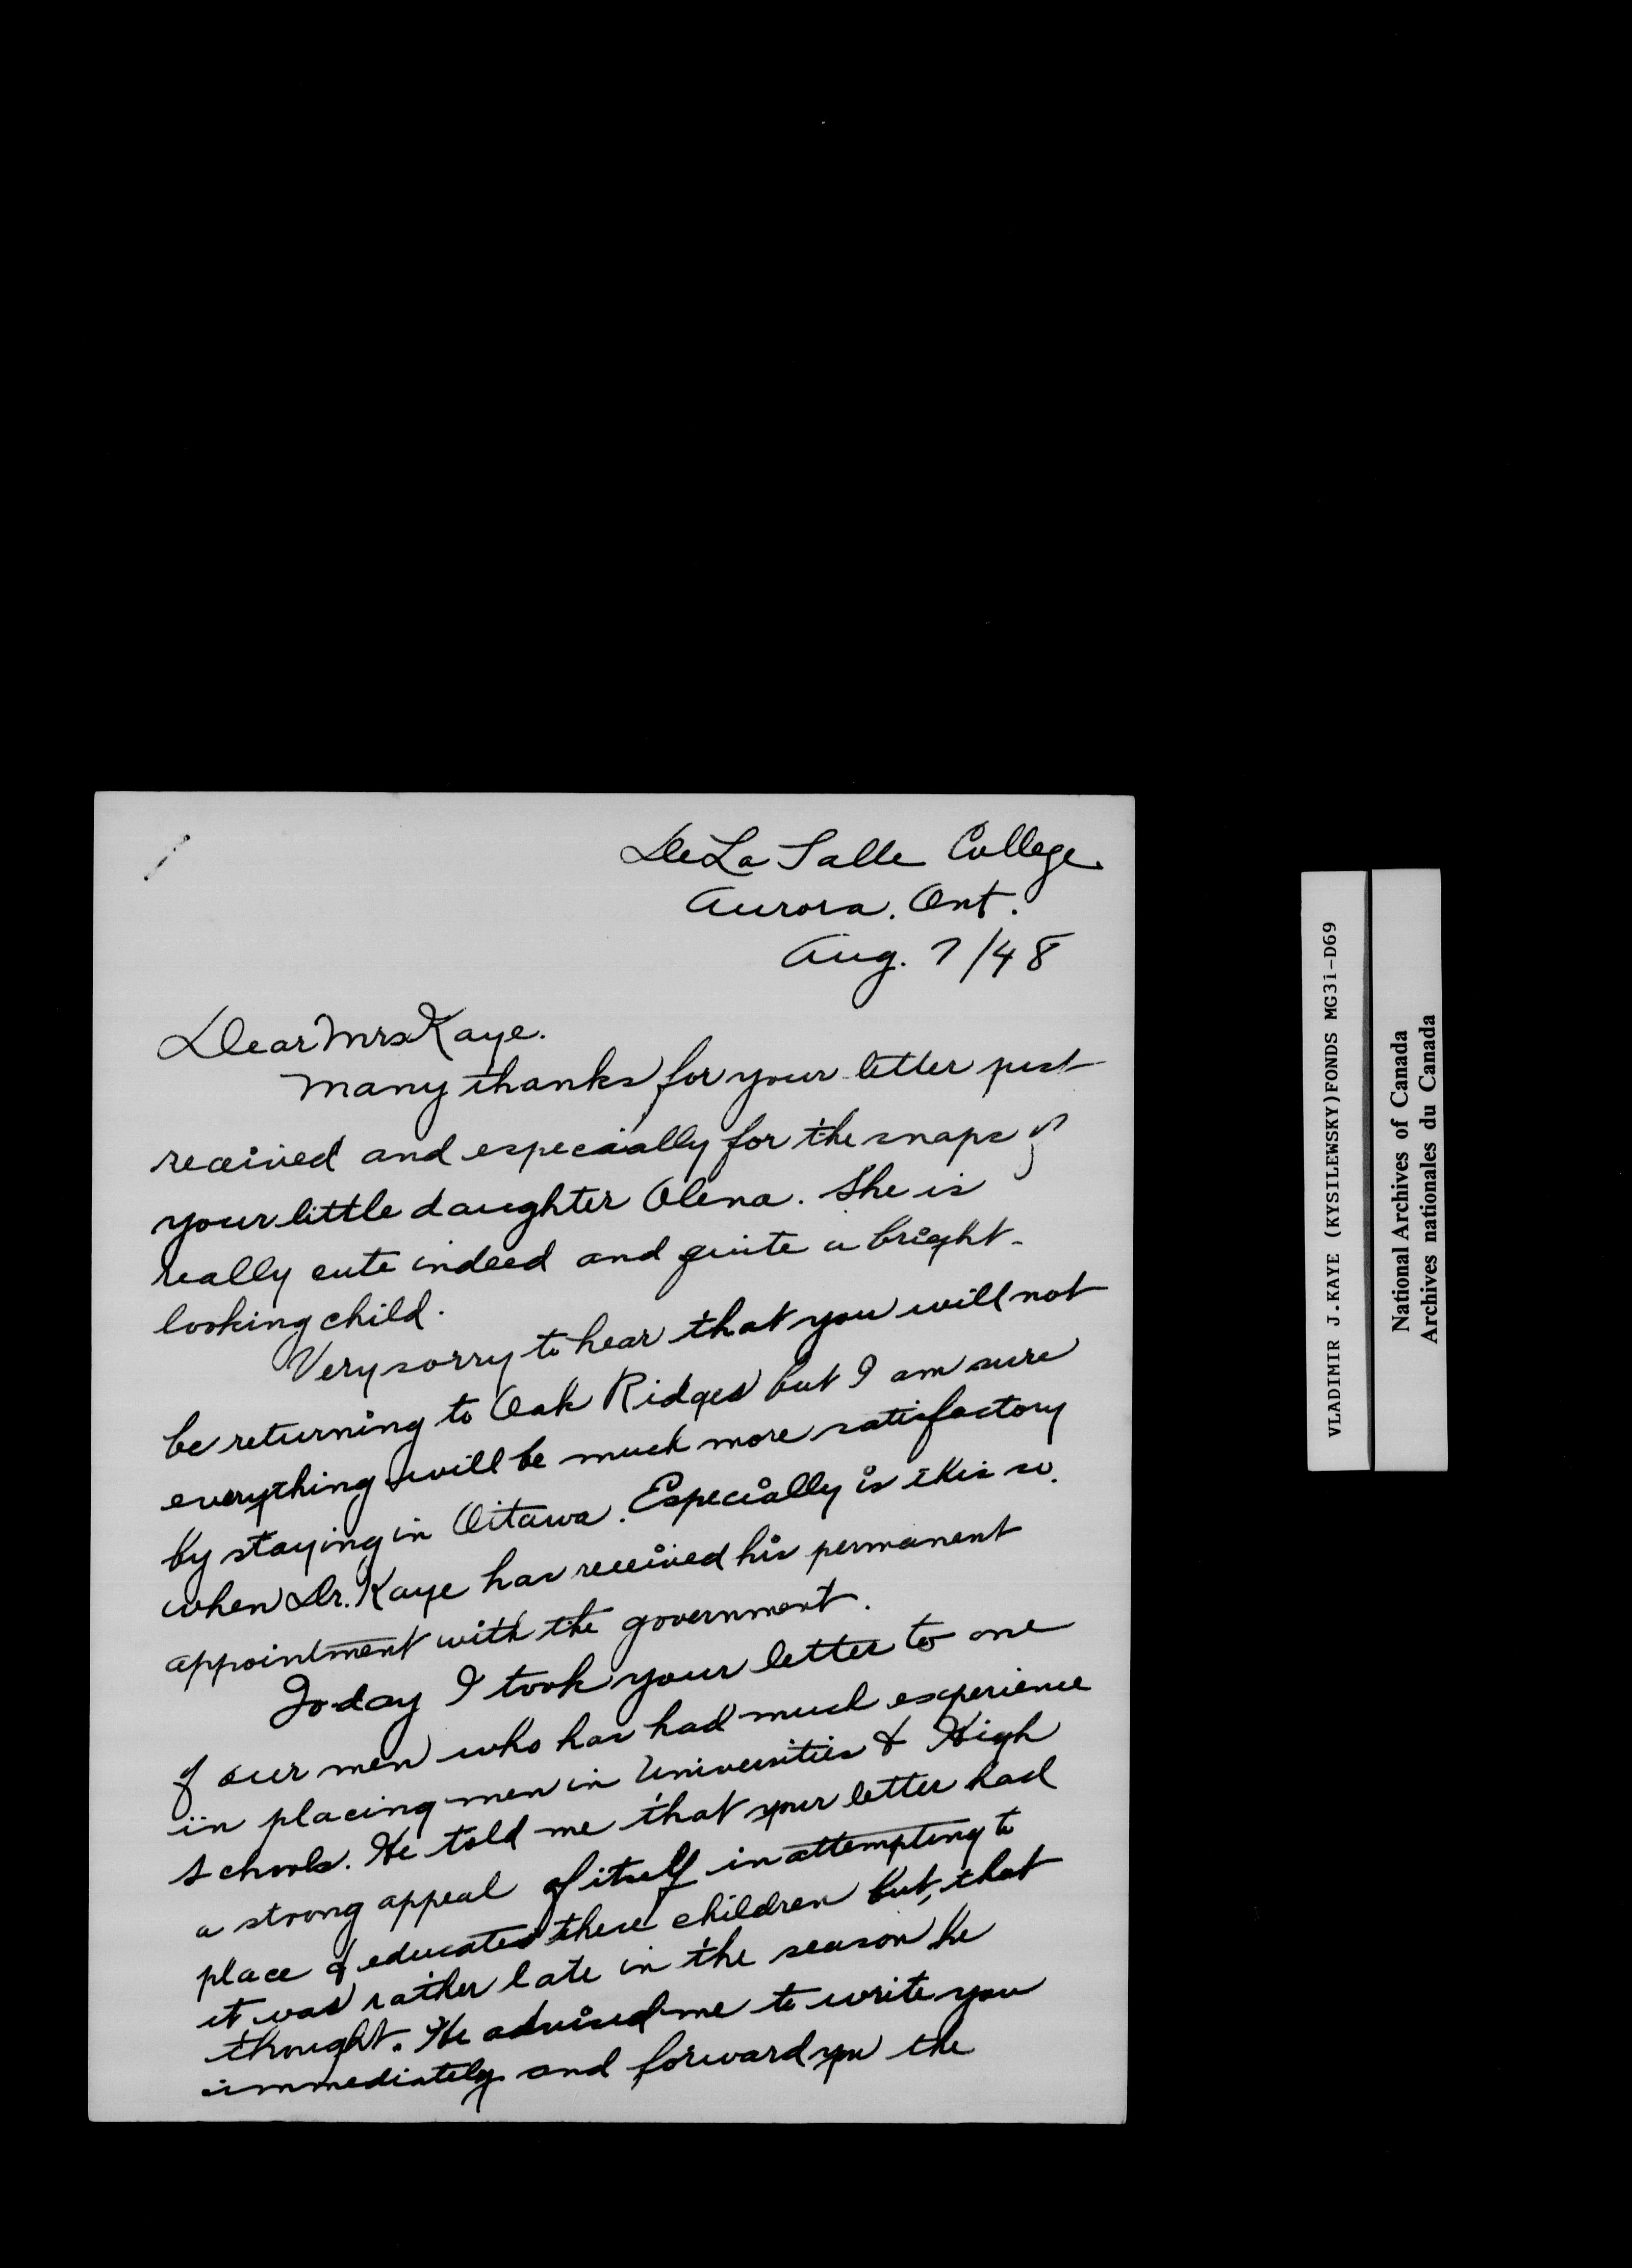 De La Salle College.
Aurora. Ont.
Aug. 7/48
Dear Mrs Kaye.
Many thanks for your letter just
received and especially for the snaps of
your little daughter Olena. She is
really cute indeed and quite a bright-
looking child.
Very sorry to hear that you will not
be returning to Oak Ridges but I am sure
everything will be much more satisfactory
by staying in Ottawa. Especially is this so.
when Dr. Kaye has received his permanent
appointment with the government.
To-day I took your letter to one
of our men who has had much experience
in placing men in Universities & High
schools. He told me that your letter had
a strong appeal of itself in attempting to
place & educated these children but, that
it was rather late in the season he
thought. He advised me to write you
immediately and forward you the
VLADIMIR J.KAYE (KYSILEWSKY)FONDS MG31-D69
National Archives of Canada
Archives nationales du Canada